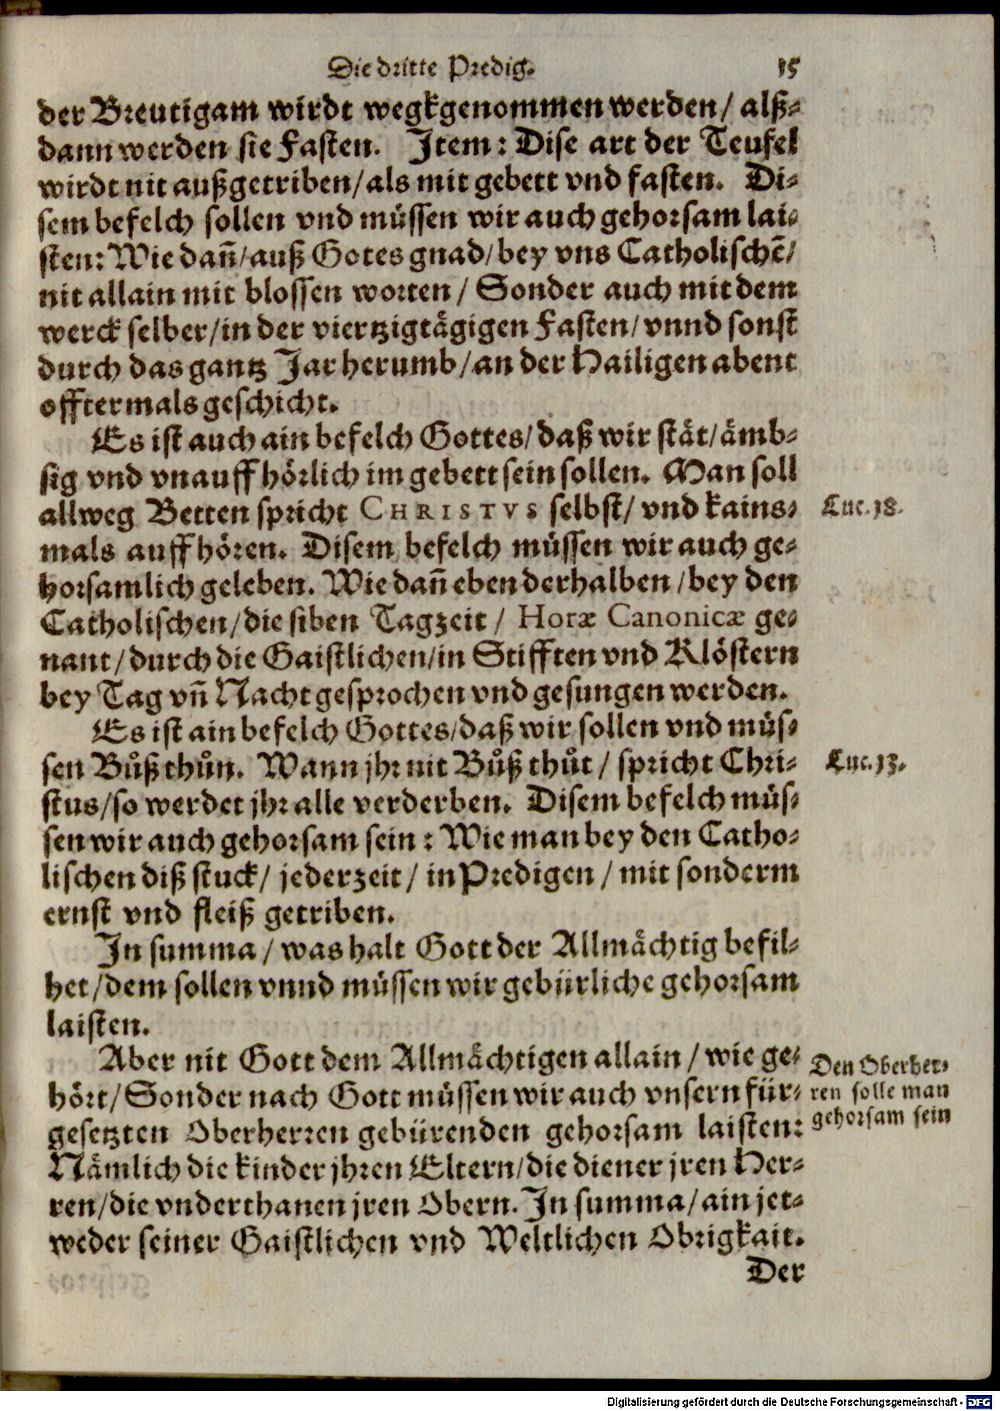 Die dritte Predig. 15
der Breutigam wirdt wegkgenommen werden / alß-
dann werden sie Fasten. Item: Dise art der Teufel
wirdt nit außgetriben/als mit gebett vnd fasten. Di-
sem befelch sollen vnd müssen wir auch gehorsam lai-
sten: Wie dañ/auß Gotes gnad/bey vns Catholischẽ/
nit allain mit blossen worten / Sonder auch mit dem
werck selber/in der viertzigtägigen Fasten/vnnd sonst
durch das gantz Jar herumb/an der Hailigen abent
offtermals geschicht.
Es ist auch ain befelch Gottes/daß wir stät/ämb-
sig vnd vnauffhörlich im gebett sein sollen. Man soll
allweg Betten spricht CHRISTVS selbst/ vnd kains-
Luc. 18.
mals auffhören. Disem befelch müssen wir auch ge-
horsamlich geleben. Wie dañ eben derhalben /bey den
Catholischen/die siben Tagzeit / Horæ Canonicæ ge-
nant/durch die Gaistlichen/in Stifften vnd Klöstern
bey Tag vñ Nacht gesprochen vnd gesungen werden.
Es ist ain befelch Gottes/daß wir sollen vnd müs-
sen Bůß thůn. Wann jhr nit Bůß thůt / spricht Chri-
Luc. 13.
stus/so werdet jhr alle verderben. Disem befelch müs-
sen wir auch gehorsam sein : Wie man bey den Catho-
lischen diß stuck/ jederzeit / in Predigen / mit sonderm
ernst vnd fleiß getriben.
In summa / was halt Gott der Allmächtig befil-
het/dem sollen vnnd müssen wir gebürliche gehorsam
laisten.
Aber nit Gott dem Allmächtigen allain / wie ge-
hört/Sonder nach Gott müssen wir auch vnsern für-
gesetzten Oberherren gebürenden gehorsam laisten:
Den Oberher-
ren solle man
gehorsam sein
Nämlich die kinder jhren Eltern/die diener jren Her-
ren/die vnderthanen jren Obern. In summa/ain jet-
weder seiner Gaistlichen vnd Weltlichen Obrigkait.
Der
Digitalisierung gefördert durch die Deutsche Forschungsgemeinschaft - DFG